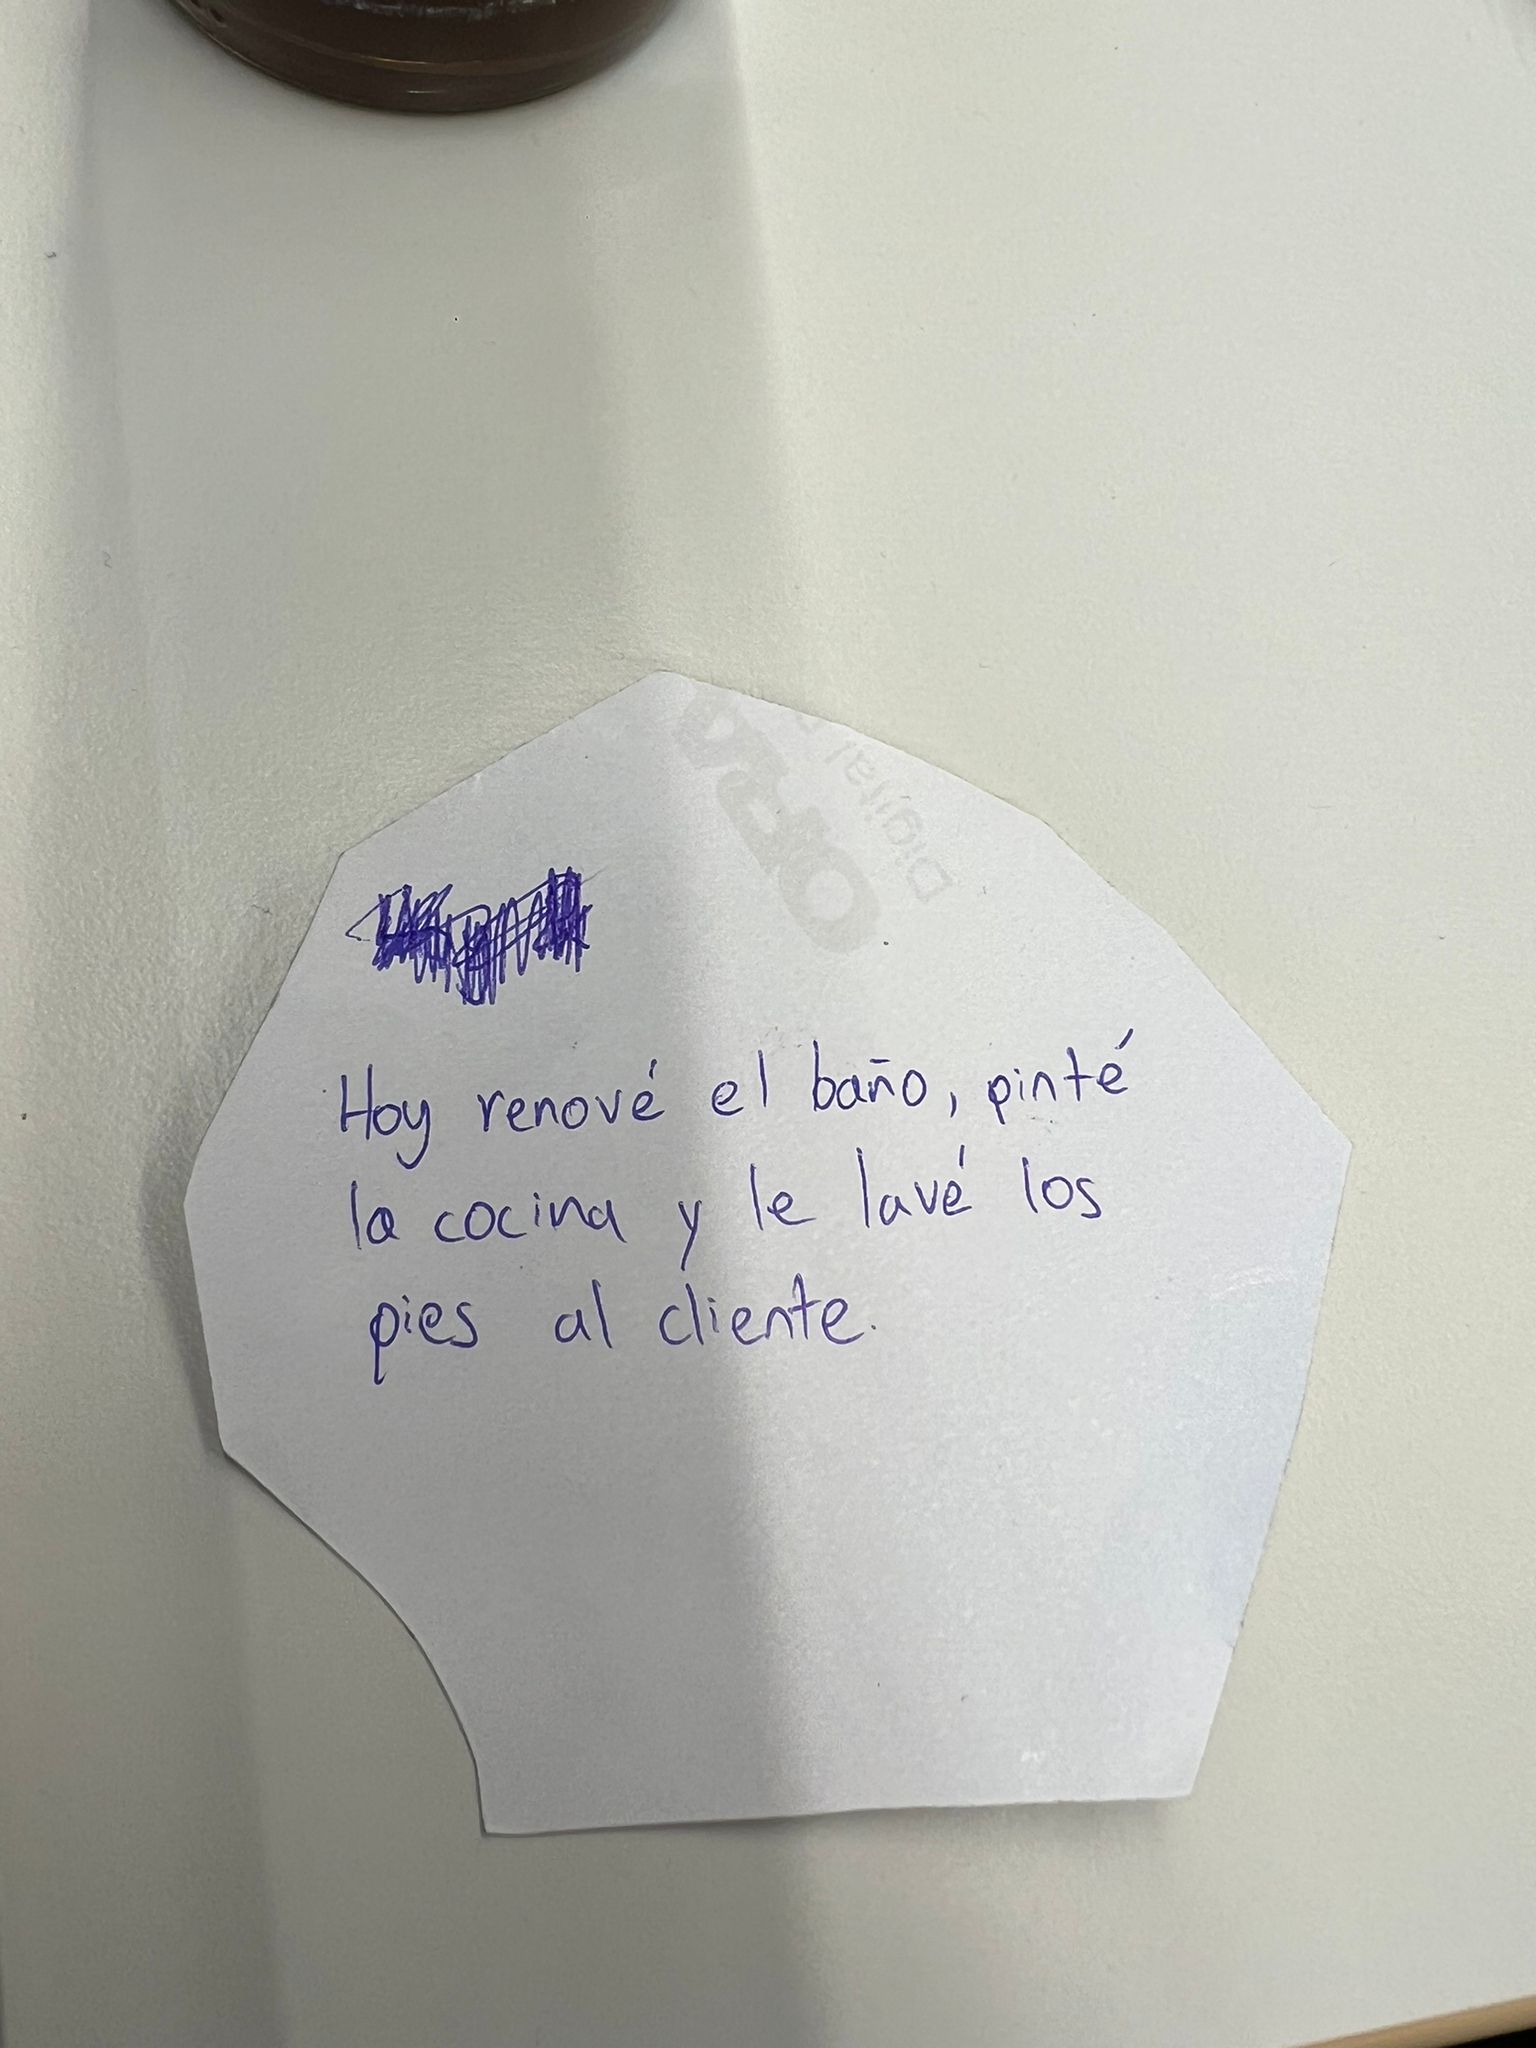 Hoy renové el baño, pinté
la cocina y le lavé los
pies al cliente.
Digital